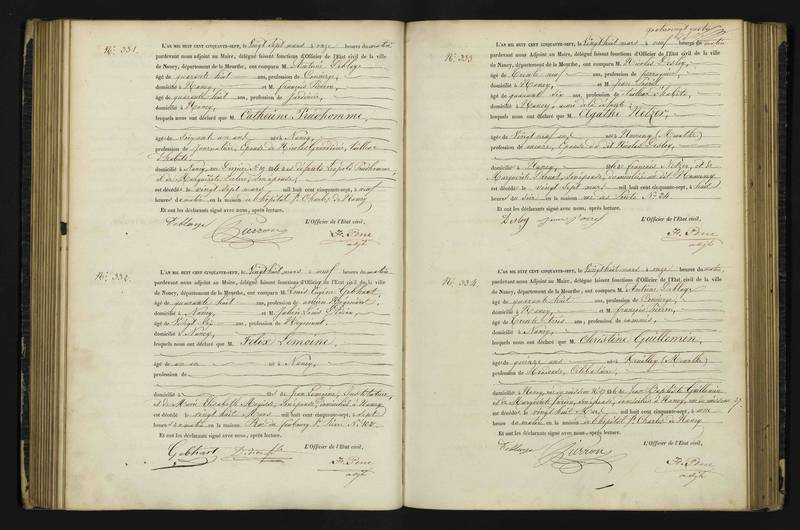 N.° 331.
L'AN MIL HUIT CENT CINQUANTE-SEPT, le Vingt sept mars à onze heures du matin
pardevant nous adjoint au Maire, délégué faisant fonctions d'Officier de l'Etat civil de la ville
de Nancy, département de la Meurthe, ont comparu M. Antoine Deblaye
âgé de quarante huit ans, profession de Concierge,
domicilié à Nancy, et M. François Pierron,
âgé de quarante huit ans, profession de
domicilié à Nancy,
lesquels nous ont déclaré que M. Catherine Prudhomme,
âgé de soixante un ans né à Nancy,
profession de journalière, Epouse de Nicolas
domicilié à Nancy, et de défunts Léopold Prudhomme,
et de Marguerite son épouse,
est décédé le vingt sept mars mil huit cent cinquante-sept, à neuf
heures du matin en la maison à l'hôpital St Charles de Nancy
Et ont les déclarants signé avec nous, après lecture.
L'Officier de l'Etat civil,
Deblaye Pierron H. Pene
adjt
N.° 332.
L'AN MIL HUIT CENT CINQUANTE-SEPT, le Vingt huit mars à neuf heures du matin
pardevant nous adjoint au Maire, délégué faisant fonctions d'Officier de l'Etat civil de la ville
de Nancy, département de la Meurthe, ont comparu M. Louis Eugène Gebhart,
âgé de quarante huit ans, profession de
domicilié à Nancy, et M. Julien Louis
âgé de Vingt six ans, profession de
domicilié à Nancy,
lesquels nous ont déclaré que M. Félix Lemoine,
âgé de un an né à Nancy,
profession de
domicilié à fils de Jean Lemoine, Instituteur
et de Marie Elisabeth son épouse, domiciliés à Nancy,
est décédé le vingt huit Mars mil huit cent cinquante-sept, à sept
heures du matin en la maison Rue du faubourg St Pierre N.° 102
Et ont les déclarants signé avec nous, après lecture.
L'Officier de l'Etat civil,
Gebhart H. Pene
adjt
N.° 333
L'AN MIL HUIT CENT CINQUANTE-SEPT, le Vingt huit mars à neuf heures du matin,
pardevant nous adjoint au Maire, délégué faisant fonctions d'Officier de l'Etat civil de la ville
de Nancy, département de la Meurthe, ont comparu M. Nicolas Desloy,
âgé de Trente neuf ans, profession de
domicilié à Nancy, et M. Jean
âgé de quarante six ans, profession de tailleur d'habits,
domicilié à Nancy,
lesquels nous ont déclaré que M. Agathe Netzer,
âgé de Vingt neuf ans née à Nomeny (Meurthe)
profession de Epouse du dit Nicolas Desloy,
domicilié à Nancy, fille de François Netzer, et de
Marguerite son épouse, domiciliés au dit Nomeny
est décédé le vingt sept mars mil huit cent cinquante-sept, à huit
heures du soir en la maison rue N.° 24
Et ont les déclarants signé avec nous, après lecture.
L'Officier de l'Etat civil,
Desloy H. Pene
adjt
N.° 334.
L'AN MIL HUIT CENT CINQUANTE-SEPT, le Vingt huit mars à onze heures du matin,
pardevant nous adjoint au Maire, délégué faisant fonctions d'Officier de l'Etat civil de la ville
de Nancy, département de la Meurthe, ont comparu M. Antoine Deblaye
âgé de quarante huit ans, profession de Concierge,
domicilié à Nancy, et M. François Pierron,
âgé de Trente trois ans, profession de commis,
domicilié à Nancy,
lesquels nous ont déclaré que M. Christine Guillemin,
âgé de quinze ans née à (Meurthe)
profession de Célibataire,
domicilié à Nancy, fille de Jean Baptiste Guillemin
et de Marguerite son épouse, domiciliés à Nancy,
est décédé le vingt huit Mars mil huit cent cinquante-sept, à une
heure du matin en la maison à l'hôpital St Charles de Nancy
Et ont les déclarants signé avec nous, après lecture.
L'Officier de l'Etat civil,
Deblaye Pierron H. Pene
adjt